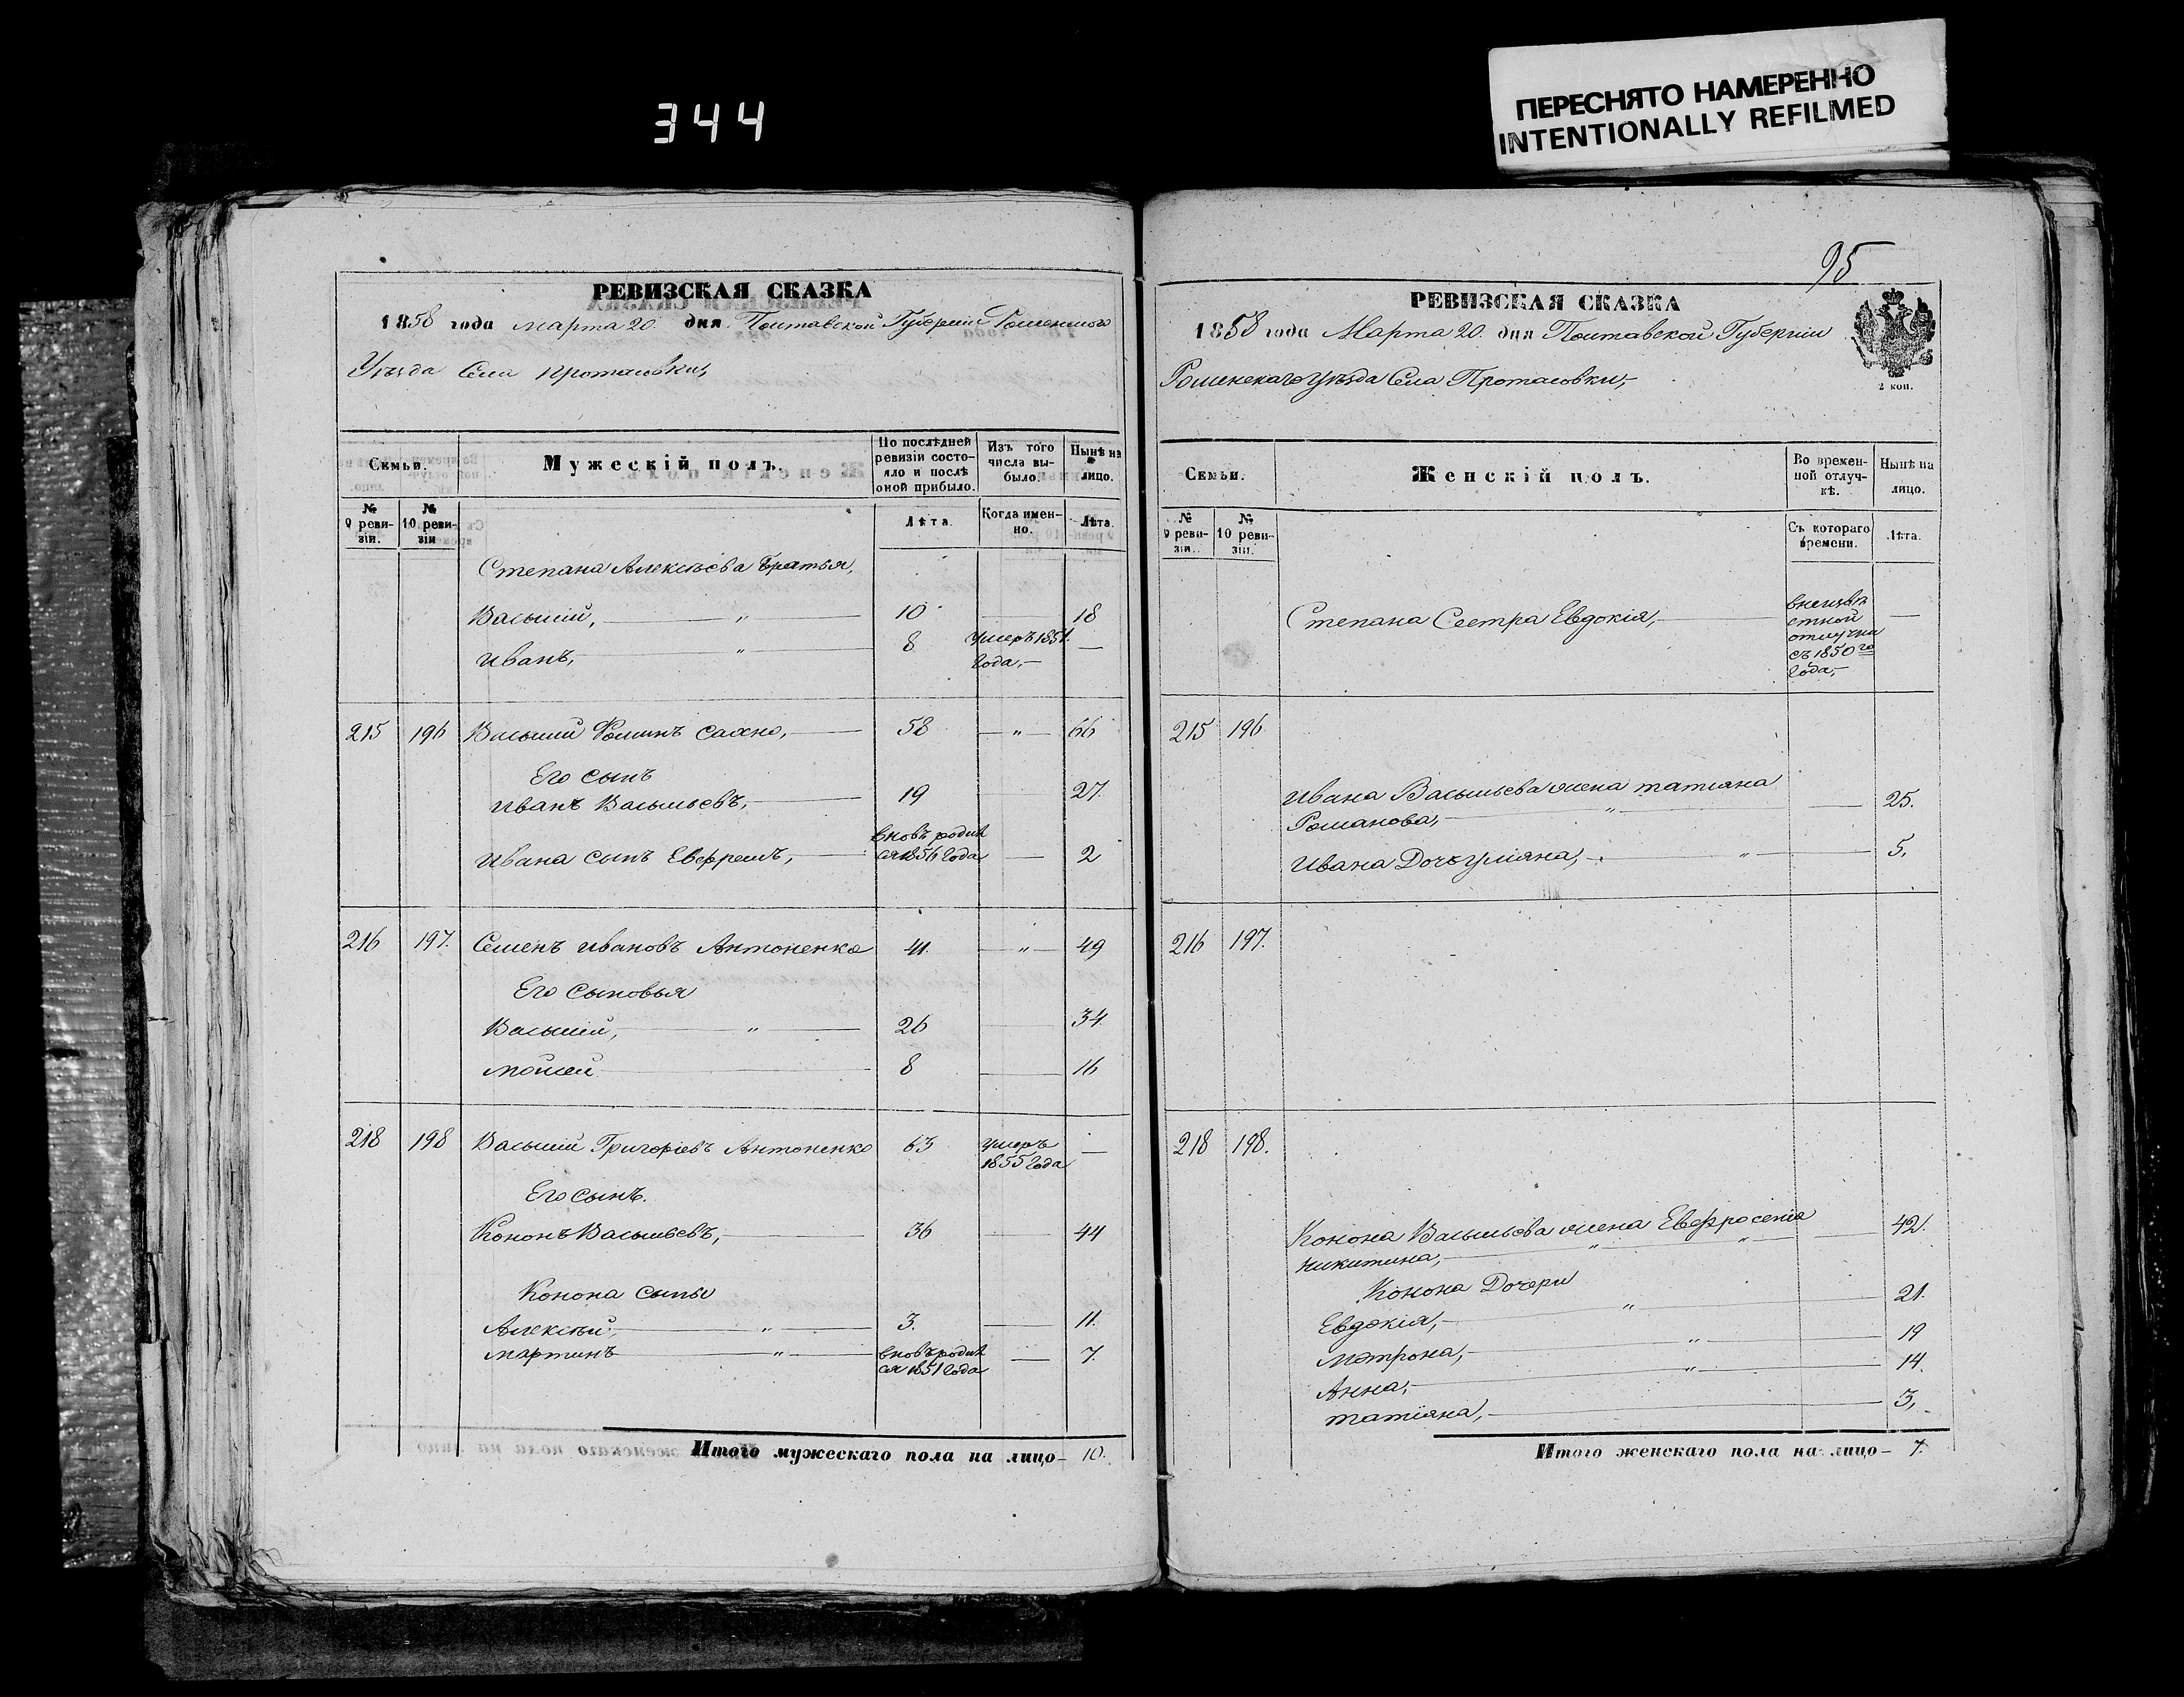 344
ПЕРЕСНЯТО НАМЕРЕННО
INTENTIONALLY REFILMED
РЕВИЗСКАЯ СКАЗКА
1858 года марта 20 дня Полтавской Губерніи Роменского
Уѣзда Села Протасовки,
Семьи.
Мужескій полъ.
По послѣдней ревизіи состояло и послѣ оной прибыло.
Изъ того числа выбыло.
Нынѣ на лицо.
№ 9 ревизіи.
№ 10 ревизіи
Лѣта.
Когда именно.
Лѣта.
Степана Алексѣева братья,
Василий, " 10 18
Иванъ, " 8 умеръ 1851.
года, —
215 196 Василий Фоминъ Сахно, 58 " 66
Его сынъ
Иванъ Васильевъ, 19 27.
вновь родил
Ивана сынъ Евфремъ, ся 1856 года 2
216 197. Семенъ Ивановъ Антоненко 41. " 49
Его сыновья
Василий, " 26 34
Мойсей 8 16
218 198 Василий Григоріевъ Антоненко 63 умеръ
1855 года —
Его сынъ.
Кононъ Васильевъ, 36 44
Конона сыны
Алексѣй, " 3. 11.
Мартинъ " вновь родил 7.
ся 1851 года
Итого мужескаго пола на лицо 10.
95
РЕВИЗСКАЯ СКАЗКА
1858 года Марта 20. дня Полтавской Губернии
Роменскаго уѣзда Села Протасовки,
2 коп.
Семьи.
Женскій полъ.
Во временной отлучкѣ.
Нынѣ на лицо.
№ 9 ревизіи.
№ 10 ревизіи.
Съ котораго времени.
Лѣта.
Степана Сестра Евдокія, внеизвѣ
стной
отлучки
съ 1850 го
года,
215 196
Ивана Васильева жена Татіана
Романова, " 25.
Ивана Дочь Уліяна, " 5.
216 197.
218 198.
Конона Васильева жена Евфросенія 42.
Никитина, " "
Конона Дочери
Евдокія, " 21.
Матрона, " 19
Анна, " 14.
Татіяна, 3,
Итого женскаго пола на лицо 7.